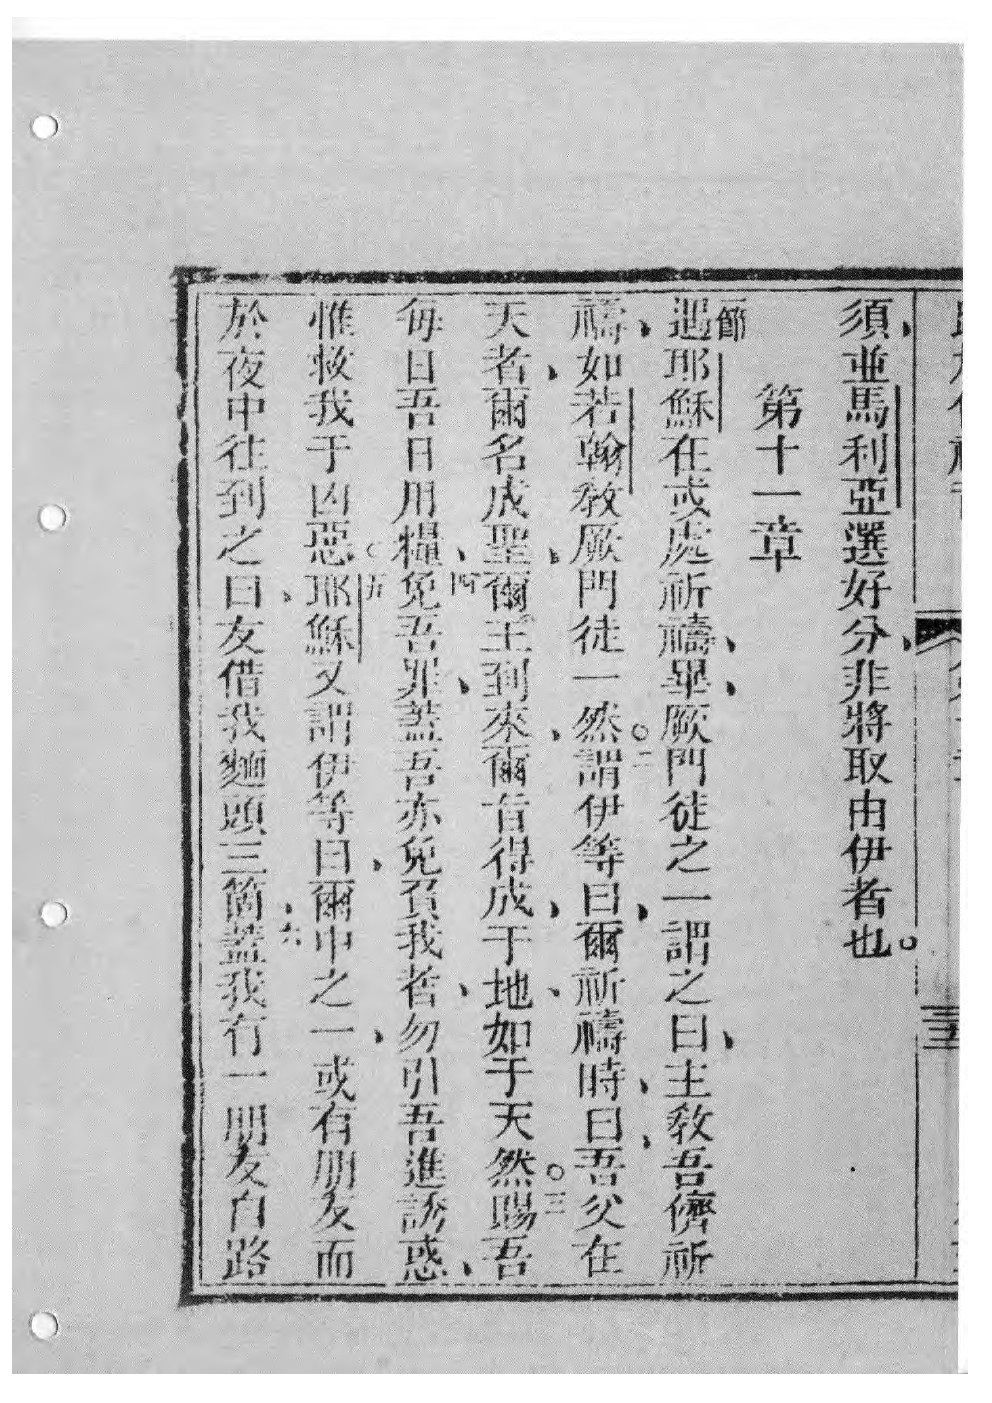 須、並馬利亞選好分、非將取由伊者也。
第十一章
一節遇耶穌在或處祈禱、畢、厥門徒之一謂之曰、主敎吾儕祈
禱、如若翰敎厥門徒一然。二謂伊等曰、爾祈禱時、曰、吾父在
天者、爾名成聖、爾王到來、爾旨得成、于地、如于天然。三賜吾
每日吾日用糧、四免吾罪、蓋吾亦免負我者、勿引吾進誘惑、
惟救我于凶惡。五耶穌又謂伊等曰、爾中之一、或有朋友而
於夜中往到之曰、友借我麵頭三箇、六蓋我有一朋友自路